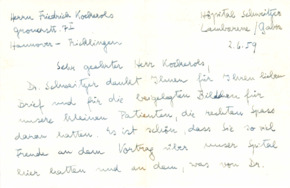 Herrn Friedrich Kocherols
Hôpital Schweitzer
Lambarene / Gabon
Hannover - Ricklingen
2.6.59
Sehr geehrter Herr Kocherols,
Dr. Schweitzer dankt Ihnen für Ihren lieben
Brief und für die beigelegten Bildchen für
unsere kleinen Patienten, die rechten Spass
daran hatten. Es ist schön, dass Sie so viel
Freude an dem Vortrag über unser Spital
hier hatten und an dem, was von Dr.